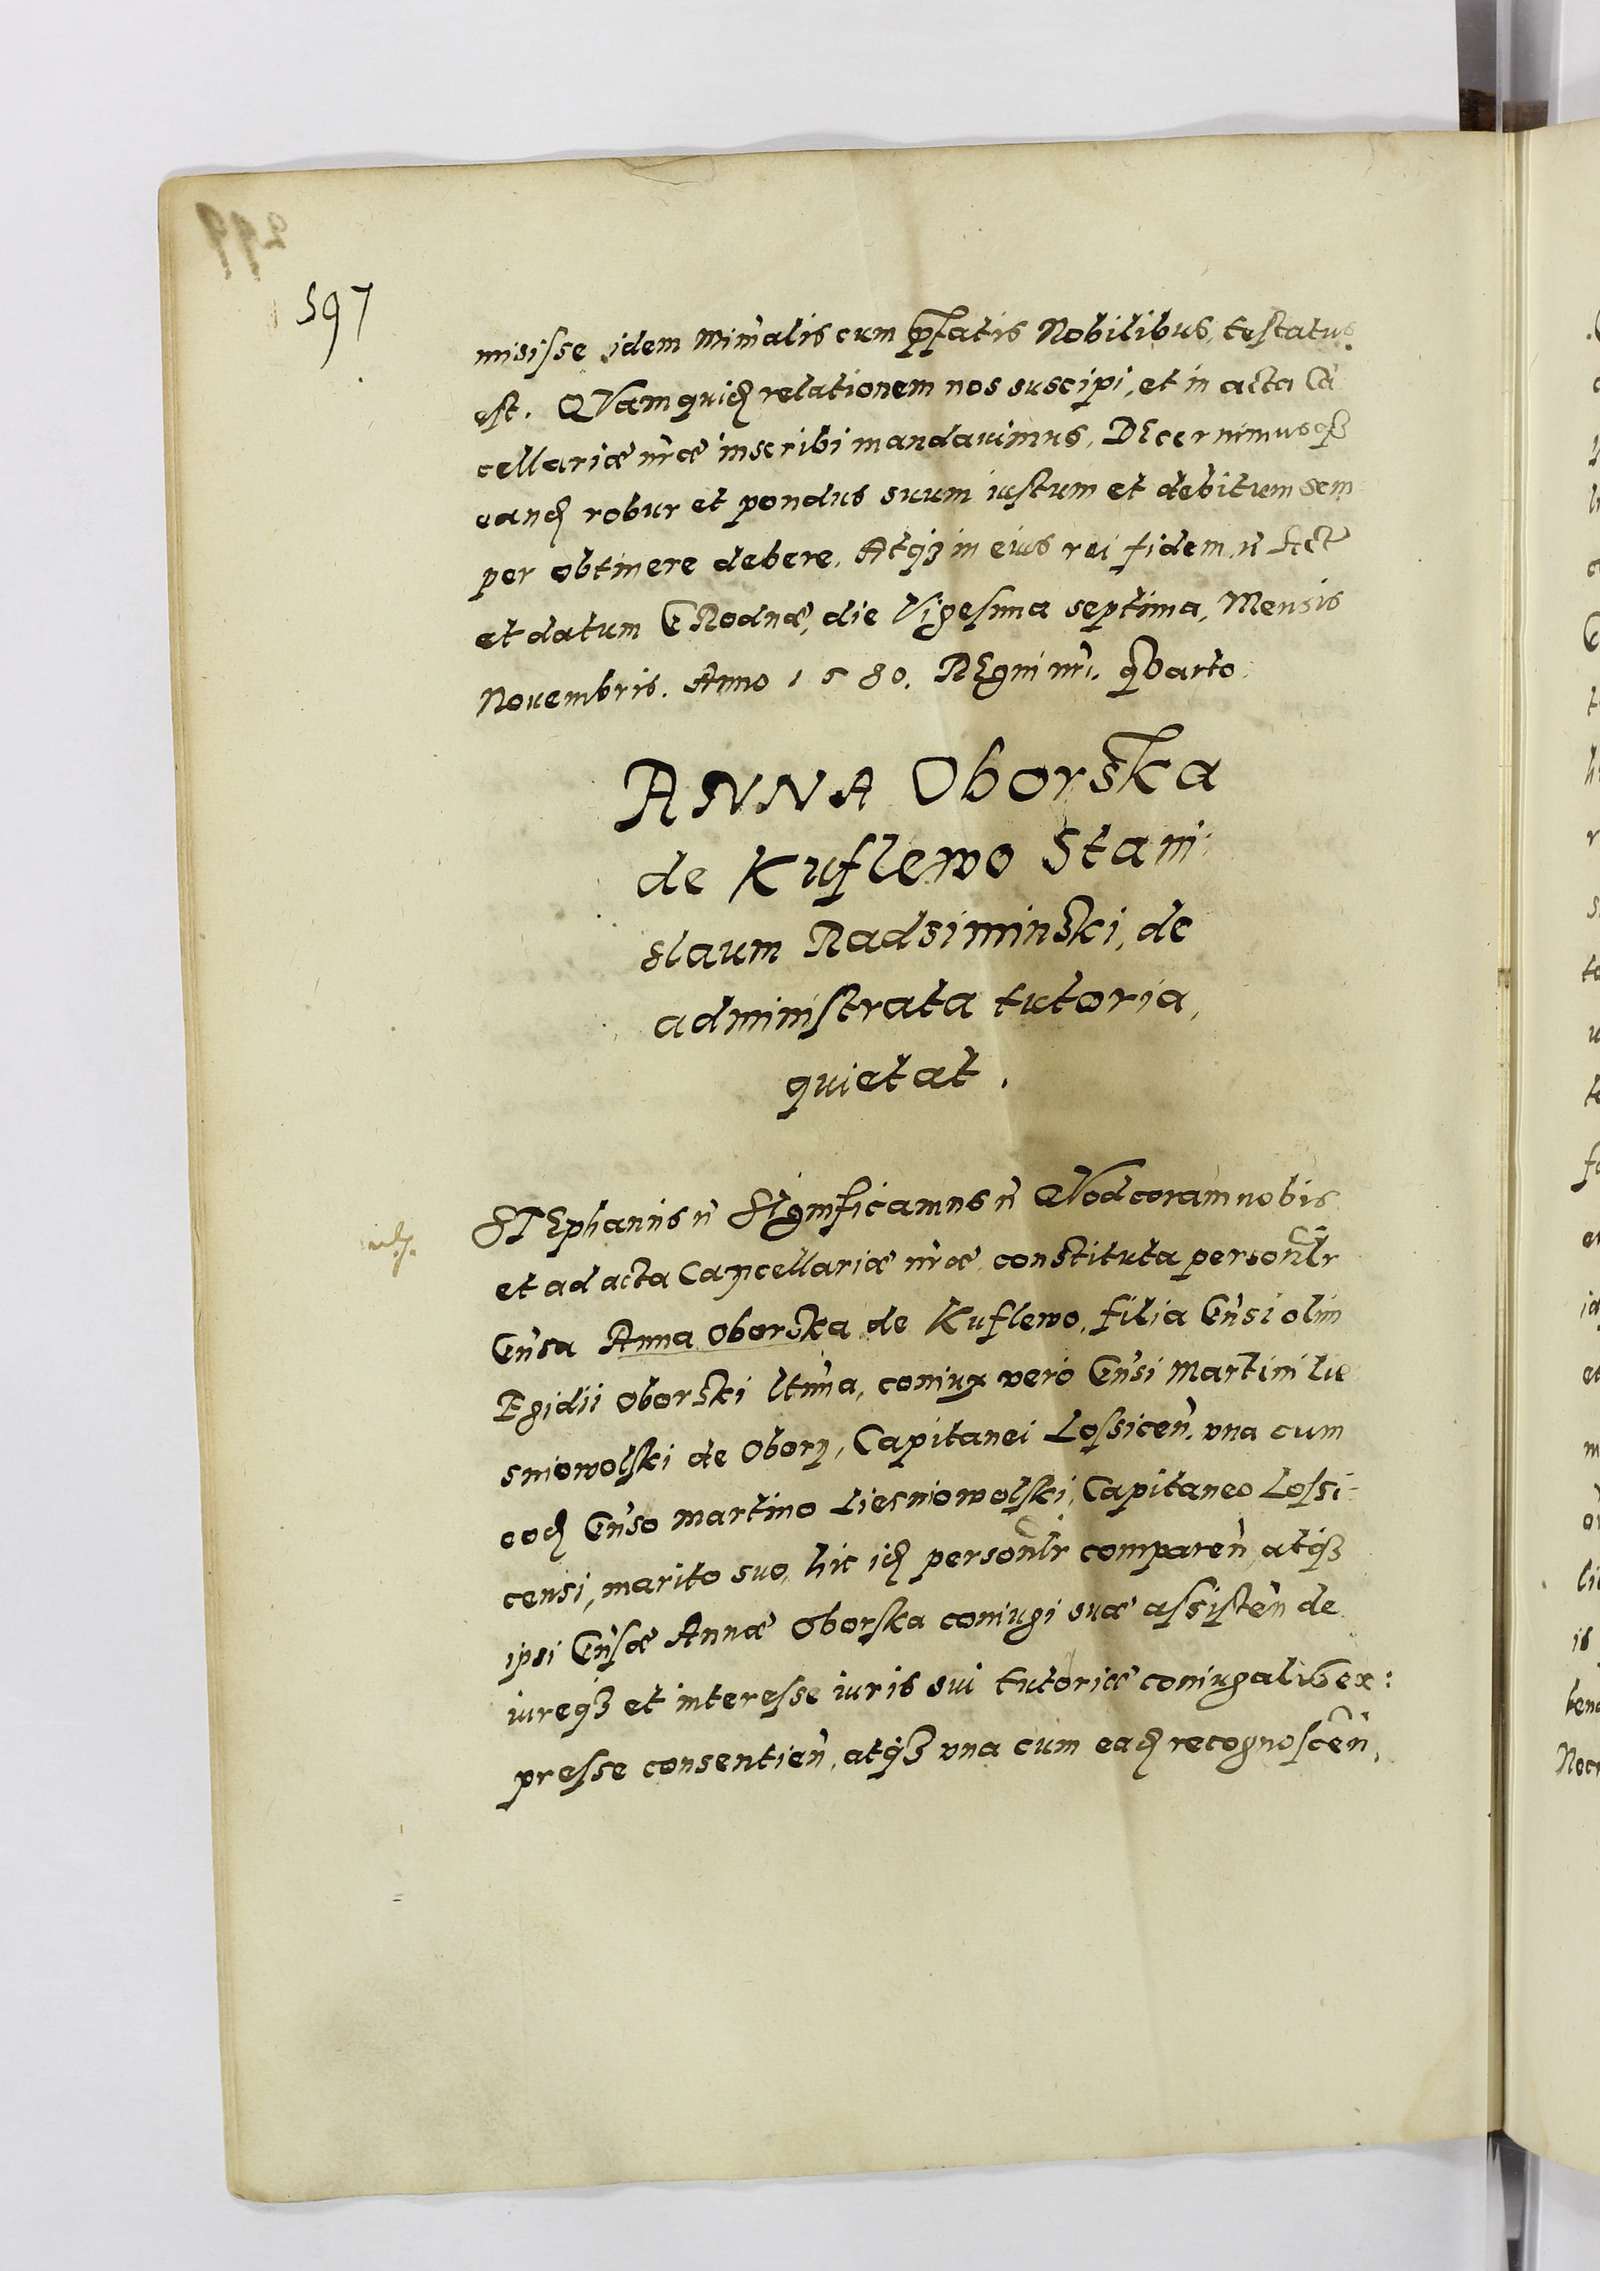 597
misisse idem Min̄alis cum p̄fatis Nobilibus, testatus
est. QVam quidẽ relationem nos suscipi, et in acta Cā
cellariæ nr̄æ inscribi mandauimus, DEcernimusqꝫ
eandẽ robur et pondus suum iustum et debitum sem
per obtinere debere. Atqꝫ in eius rei fidem, ñ Act̃
et datum GRodnæ, die Vigesima septima, Mensis
Nouembris. Anno 1580. REgni nr̄i. qVarto.
ANNA Oborska
de Kuflewo Stani
slaum Radsiminski, de
administrata tutoria,
quietat.
STEphanus ñ SIgnificamus ñ QVod coram nobis
et ad acta Cancellariæ nr̄æ constituta personl̄r
Gn̄sa Anna Oborska de Kuflewo, filia Gn̄si olim
Egidii Oborski ltīma, coniux vero Gn̄si Martini Lie
sniowolski de Obory, Capitanei Lossiceñ. vna cum
eodẽ Gn̄so Martino Liesniowolski, Capitaneo Lossi-
censi, marito suo, hic idẽ personl̄r compareñ, atqꝫ
ipsi Gn̄sæ Annæ Oborska coniugi suæ assisteñ de
iureqꝫ et interesse iuris sui tutoriæ coniugalis ex:
presse consentieñ, atqꝫ vna cum eadẽ recognosceñ,